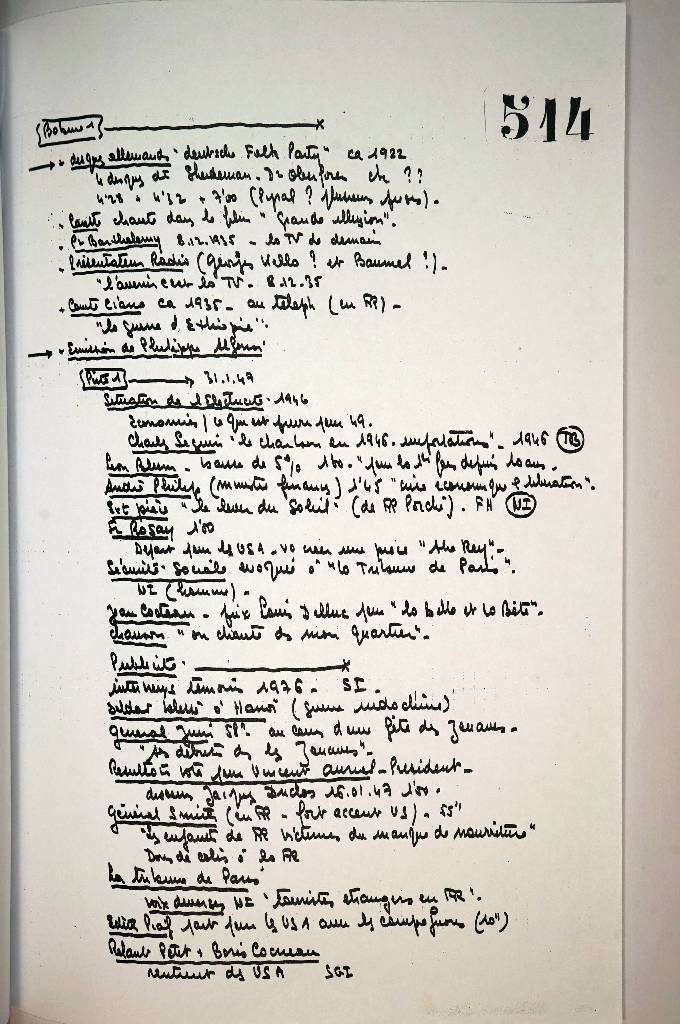 514
Bobine 1
disques allemands "deutsche Folk Party" ca 1922
4 disques de
4'28 + 4'32 + 7'00 (Pyral ? plusieurs
Comte chante dans le film "Grande illusion".
Pr Barthelemy 8.12.1935 - la TV de demain
Présentateur Radio (Georges ? et !).
"l'avenir c'est la TV - 8.12.35
Comte Ciano ca 1935 - au téléph (en FR) -
"la guerre d'Ethiopie".
Emission de Philippe
Piste 1 31.1.47
Situation de l'Electricité - 1946
Economies / ce qui est prévu pour 49.
Charles Seguin "le charbon en 1946. importations" - 1946 TB
Leon Blum - baisse de 5% 1'00 - "pour la 1ère fois depuis 10 ans.
André Philip (ministre finances) 1'45 "crise économique & libération".
Ext pièce "le lever du Soleil" (de FR Porché). FH NI
Fr Rosay 1'00
Départ pour les USA - va créer une pièce
Sécurité Sociale evoquée à "la Tribune de Paris".
NI (homme) -
Jean Cocteau - prix Louis Delluc pour "la belle et la Bête".
chanson "on chante ds mon quartier".
Publicité -
interviews témoin 1976 - SI -
Soldat blessé à Hanoï (guerre indochine)
General Juin 58" au cours d'une fête des Zouaves -
"ses débuts ds les Zouaves" -
Resultats vote pour Vincent Auriol - President -
discours Jacques Duclos 16.01.47 1'00 -
Général Smith (en FR - fort accent US) - 55"
"les enfants de FR victimes du manque de nourriture"
Dons de colis à la FR
La tribune de Paris
voix diverses NI "touristes étrangers en FR".
Edith Piaf part pour les USA avec les compagnons (10")
Roland Petit + Boris Cocneau
rentrent des USA SGI